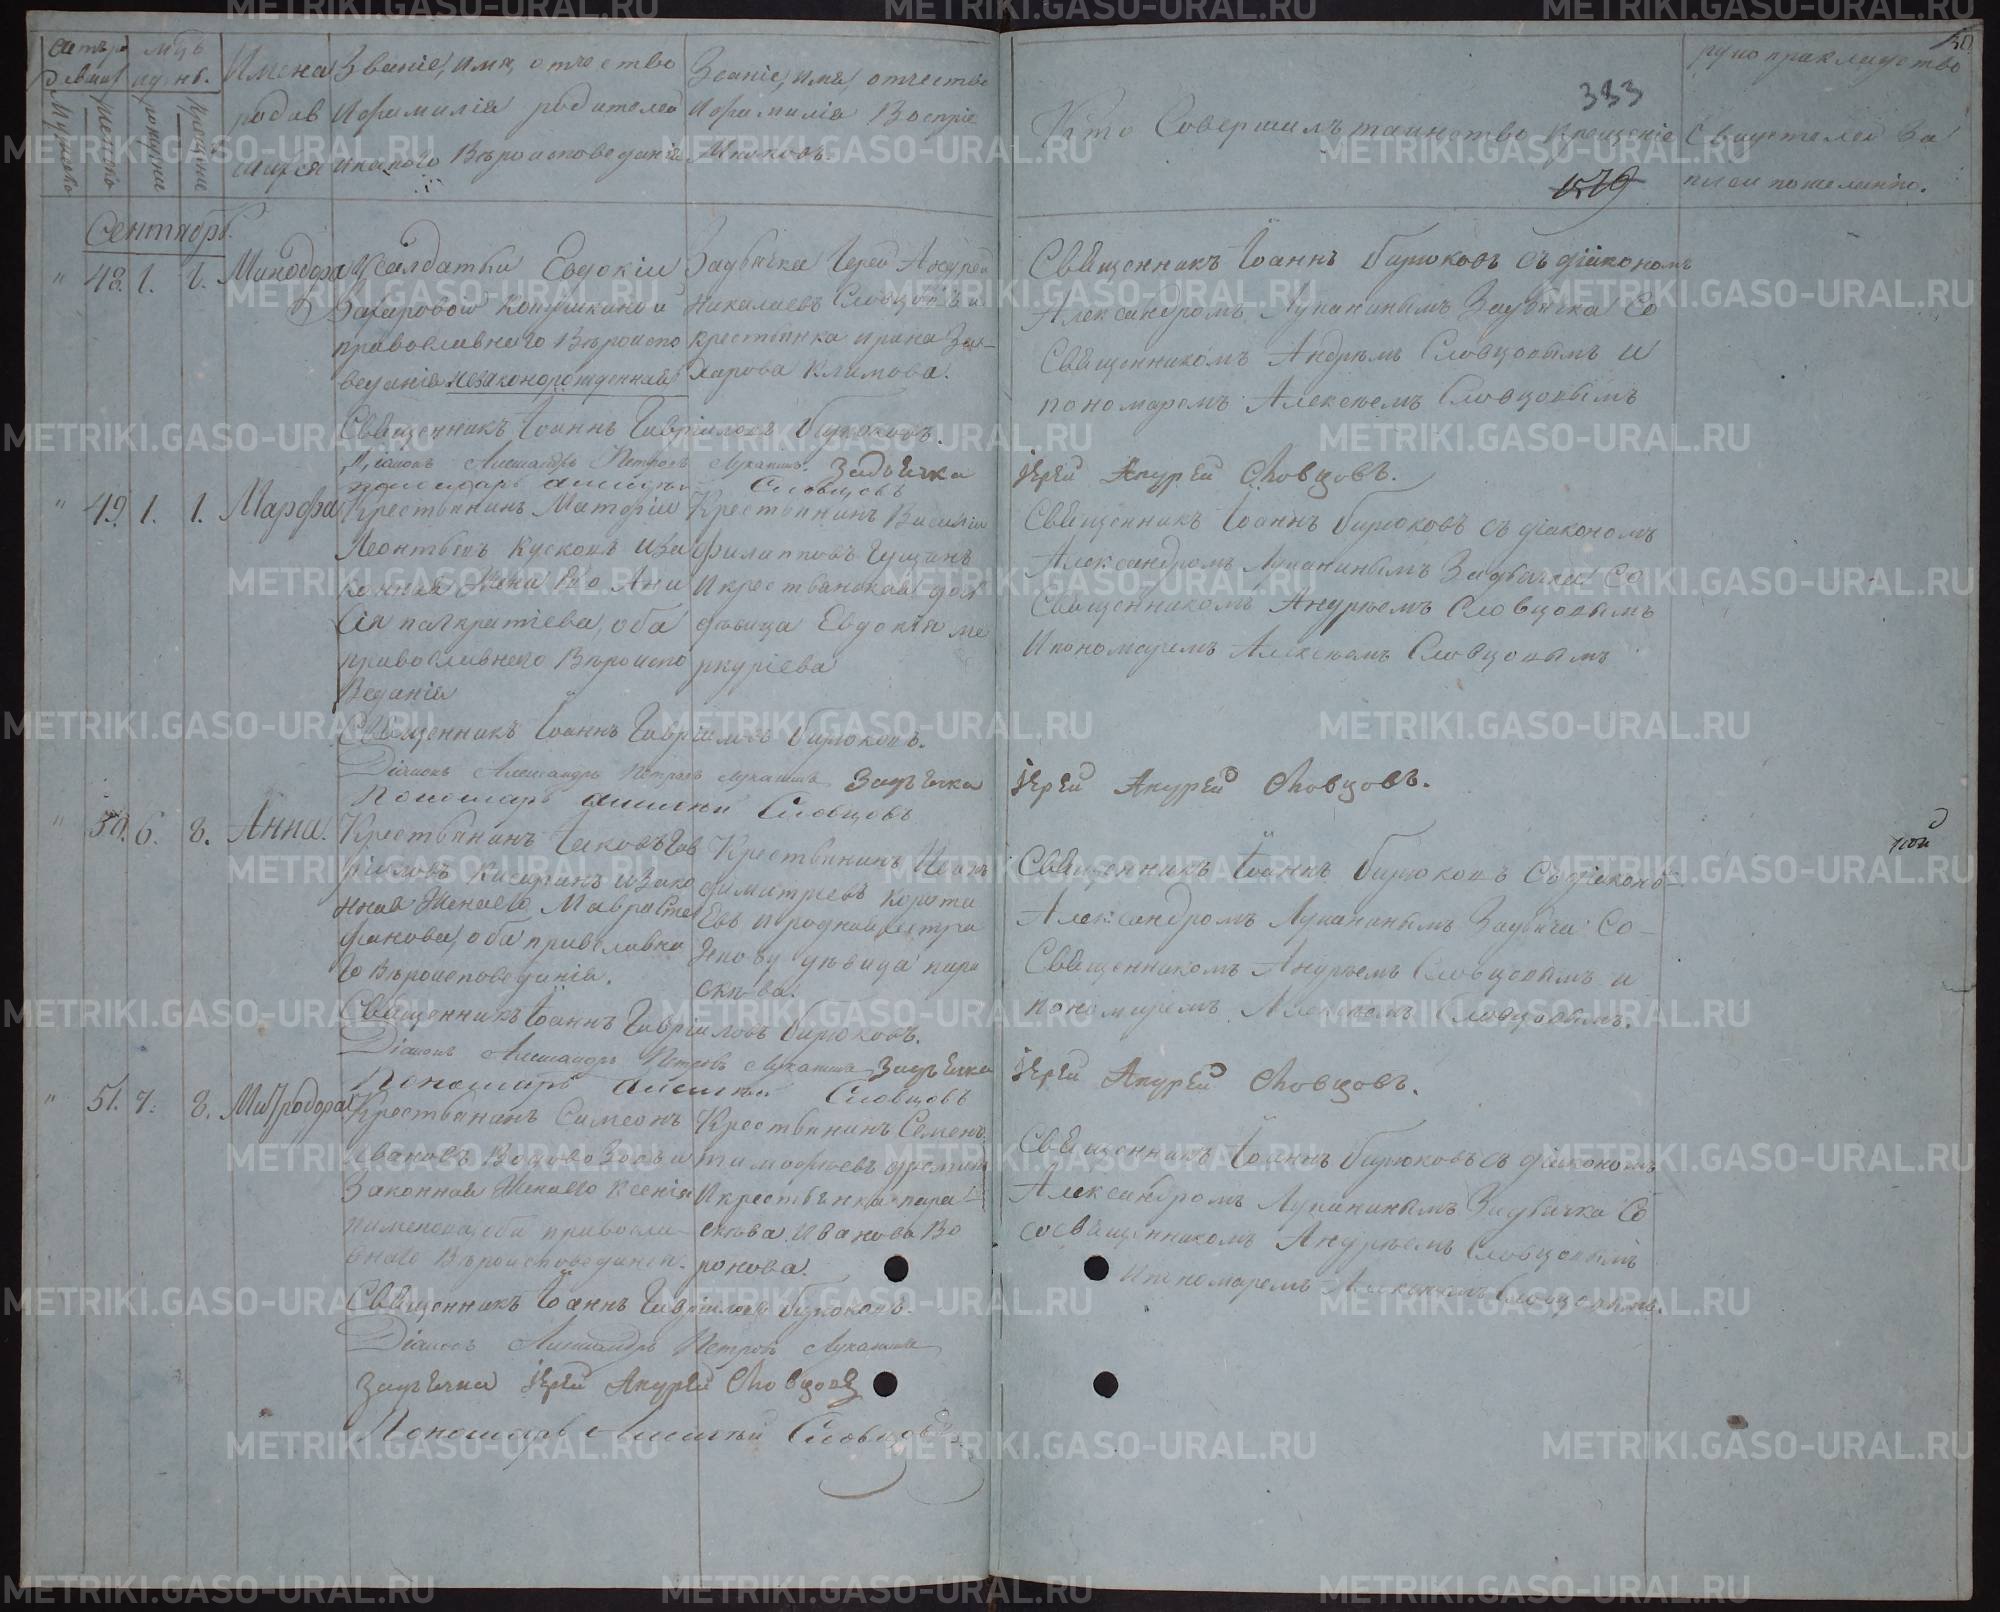 Счетъ родившихся
Мужеска
Женска
Мѣсяцъ и день
рожденія
крещенія
Имена родившихся
Званіе, имя, отчество
и фамилія родителей
и какого Вѣроисповеданія
Званіе, имя, отчество
и фамилія Воспріе
мниковъ.
Кто Совершилъ таинство Крещенія
333
1579
Рукоприкладство
Свидетелей За
писи по желанію.
Сентябрь.
" 48. 1. 1. Минодора
Солдатки Евдокіи
Захаровой
православнаго Вѣроиспо
веданія незаконорожденная
Задьячка Іерей Андрей
Николаевъ Словцовъ и
крестьянка Ирина За-
харова Климова.
Священникъ Іоаннъ Бирюковъ съ діакономъ
Александромъ Лукашинымъ Задьячка Со
Священникомъ Андрѣемъ Словцовымъ и
пономаремъ Алексѣемъ Словцовымъ
Священникъ Іоаннъ Гавріиловъ Бирюковъ.
Діаконъ Александръ Петровъ Лукашинъ. Задьячка
Іерей Андрей Словцовъ.
пономарь Алексѣй Словцовъ
" 49. 1. 1. Марфа
Крестьянинъ Матфій
Леонтьевъ Кусковъ и за
конная Жена Его Ани
сія Панкратіева, оба
православнаго Вѣроиспо
веданія
Крестьянинъ Василій
Филипповъ
и крестьянская дочь
дѣвица Евдокія Ме
ркуріева
Священникъ Іоаннъ Бирюковъ съ діакономъ
Александромъ Лукашинымъ Задьячка Со
Священникомъ Андрѣемъ Словцовымъ
И пономаремъ Алексѣемъ Словцовымъ
Священникъ Іоаннъ Гавріиловъ Бирюковъ.
Діаконъ Александръ Петровъ Лукашинъ Задьячка
Іерей Андрей Словцовъ.
Пономарь Алексѣй Словцовъ
" 50. 6. 8. Анна.
Крестьянинъ Іяковъ Гав
ріиловъ и зако
нная Жена его Мавра Сте
фанова, оба православна
го Вѣроисповеданія.
Крестьянинъ Иванъ
Димитріевъ
и родная сестра
дѣвица Пара
скѣва.
Священникъ Іоаннъ Бирюковъ Со діаконо-
Александромъ Лукашинымъ Задьячка Со-
Священникомъ Андрѣемъ Словцовымъ и
пономаремъ Алексѣемъ Словцовымъ.
Священникъ Іоаннъ Гавріиловъ Бирюковъ.
Діаконъ Александръ Петровъ Лукашинъ Задьячка
Іерей Андрей Словцовъ.
Пономарь Алексѣй Словцовъ
" 51. 7. 8. Митродора
Крестьянинъ Симеонъ
Ивановъ и
Законная Жена его Ксенія
Пименова, оба правосла-
внаго Вѣроисповеданія.
Крестьянинъ Семенъ
Тимофѣевъ
И крестьянка Пара
скѣва Иванова Во
ронова.
Священникъ Іоаннъ Бирюковъ съ діакономъ
Александромъ Лукашинымъ Задьячка Со
сосвященникомъ Андрѣемъ Словцовымъ
И пономаремъ Алексѣемъ Словцовымъ.
Священникъ Іоаннъ Гавріиловъ Бирюковъ.
Діаконъ Александръ Петровъ Лукашинъ
Задьячка Іерей Андрей Словцовъ
Пономарь Алексѣй Словцовъ
METRIKI.GASO-URAL.RU